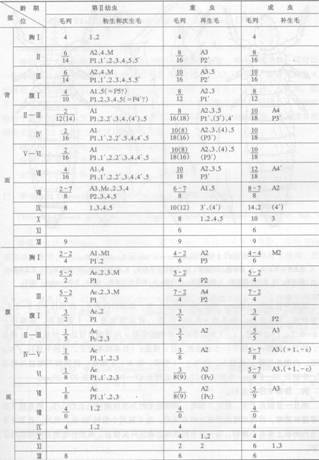 龄 期 第Ⅱ幼虫 童 虫 成 虫
部 位 毛列 初生和次生毛 毛列 再生毛 毛列 补生毛
背
面
胸Ⅰ 4 1,2 4 4
Ⅱ 6/14 A2,4,M P1,1',2',3,4,5,5' 8/16 A3 P2' 8/16
Ⅲ 6/14 A2,4,M P1,1',2',3,4,5,5' 10/16 A3,5 P2' 10/16
腹Ⅰ 4/10 A1,5(=P5?) P1,2,3,4,5(=P4'?) 8/12 A2,3 P1' 8/12
Ⅱ—Ⅲ 2/12(14) A1 P1,2,2',3,4,(4'),5 8/16(18) A2,3,5 P1',(3'),4' 10/18 A4 P3'
Ⅳ 2/16 A1 P1,1',2,2',3,4,4',5 10(8)/16(18) A2,3,(4),5 (P3') 10/18
Ⅴ—Ⅵ 2/16 A1 P1,1',2,2',3,4,4',5 10(8)/16(18) A2,3,(4),5 (P3') 10/18
Ⅶ 4/16 A1,4 P1,1',2,2',3,4,4',5 10/18 A2,3,5 P3' 12/18 A4'
Ⅷ 2-7/6 A3,Mc,2,3,4 P2,3,4,5 6-7/8 A1,5 8-7/8 A2
Ⅸ 8 1,3,4,5 10(12) 3',(4') 14,2 (4')
Ⅹ 8 1,2,4,5 10 3
Ⅺ 6 6
Ⅻ 9 9 9
腹
面
胸Ⅰ 2-2/4 A1,M1 P1,2 4-2/6 A2 P3 4-4/6 M2
Ⅱ 5-2/2 Ac,2,3,M P1 5-2/4 P2 5-2/4
Ⅲ 5-2/2 Ac,2,3,M P1 7-2/4 A4 P2 7-2/4
腹Ⅰ 3/2 Ac,2 P1 3/2 3/4 P2
Ⅱ—Ⅲ 1/5 Ac Pc,2,3 3/5 A2 5/5 A3
Ⅳ—Ⅴ 1/8 Ac P1,1',2,3 3/8 A2 5-7/8 A3,(+1,-c)
Ⅵ 1/8 Ac P1,1',2,3 3/8(9) A2 (Pc) 5-7/9 A3,(+1,-c)
Ⅶ 1/8 Ac P1,1',2,3 3/8(9) A2 (Pc) 5/9 A3
Ⅷ 4/0 1,2 4/0 4/0
Ⅸ 4 1,2 4 4
Ⅹ 4 1,2 4
Ⅺ 2 2 6 1,3
Ⅻ 8 6 6